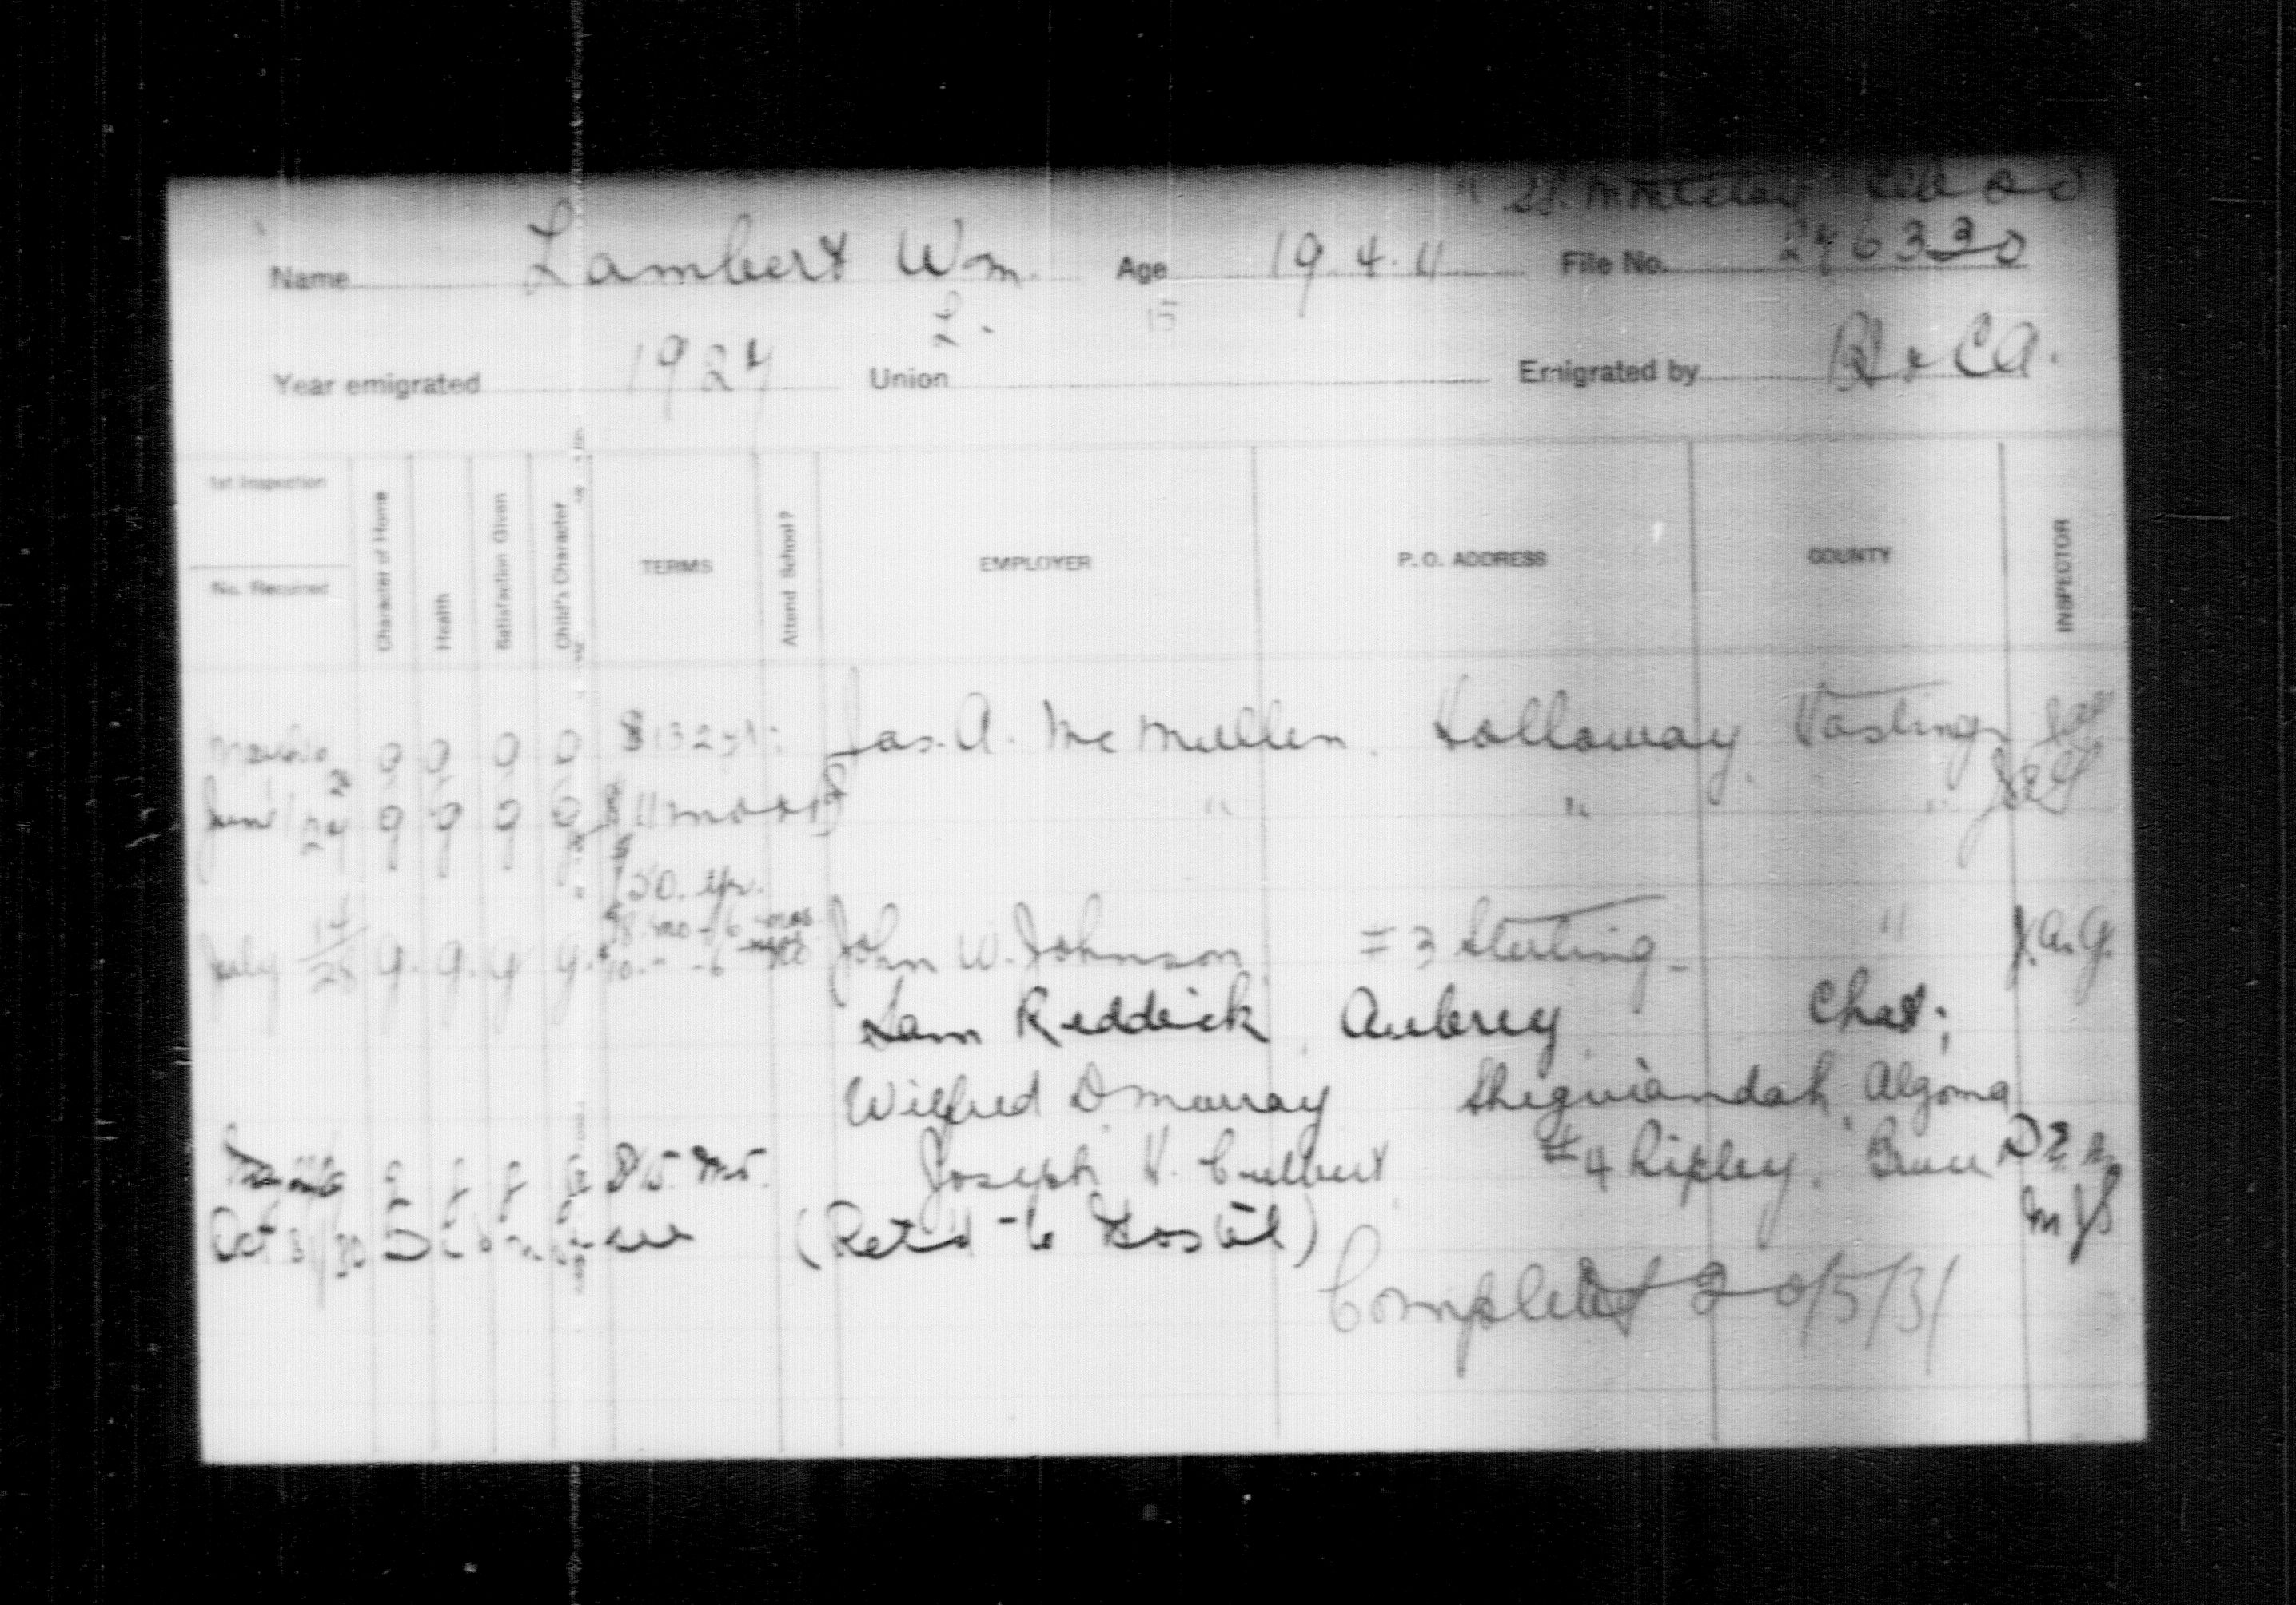 Name Lambert Wm. Age 19.4.11 File No. 246330
L. 15
Year emigrated 1924 Union Emigrated by
1st Inspection
No. Required
Character of Home
Health
Satisfaction Given
Child's Character
TERMS
Attend School?
EMPLOYER
P. O. ADDRESS
COUNTY
INSPECTOR
$132 yr: Jas. A. McMullen. Holloway Hastings
June g g g g " " "
150. yr.
July 14/28 g. g. g g. John W. Johnson #3 Sterling " J.A.G.
10. " - 6
Sam Reddick Aubrey Chat;
Wilfred D Murray Sheguiandah Algoma
g g g g $15. Joseph H. Culbert #4 Ripley. Bruce
Oct 31/30 (Ret'd to Hostel)
Completed 20/5/31